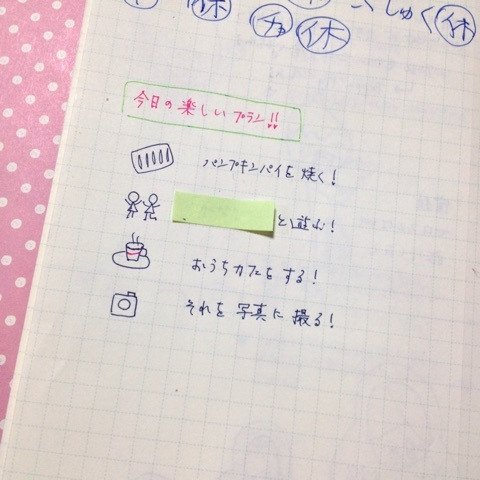 休 休 しゅく休
休
今日の楽しいプラン!!
パンプキンパイを焼く!
と遊ぶ!
おうちカフェをする!
それを写真に撮る!